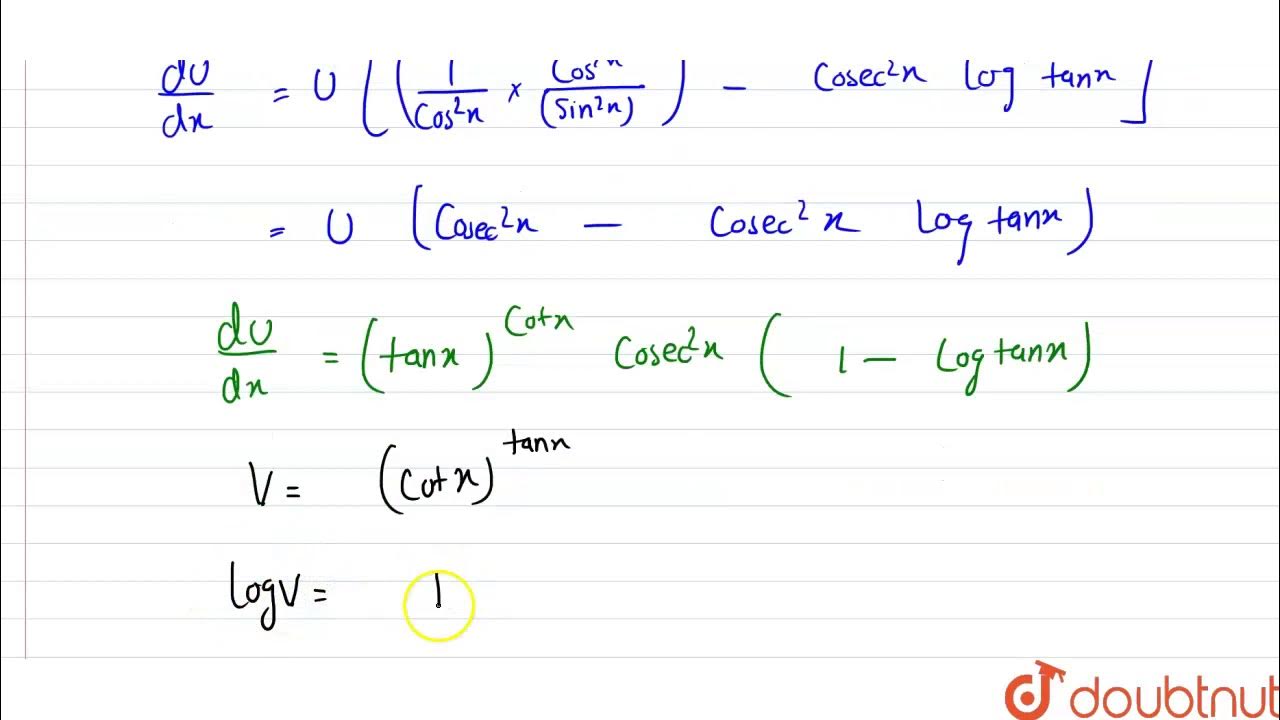 dU/dx = U [ ( 1/Cos²x × Cos²x/(Sin²x) ) − Cosec²x log tanx ]
= U (Cosec²x − Cosec²x log tanx)
dU/dx = (tanx)^Cotx Cosec²x ( 1 − log tanx)
V = (Cotx)^tanx
logV = 1
doubtnut